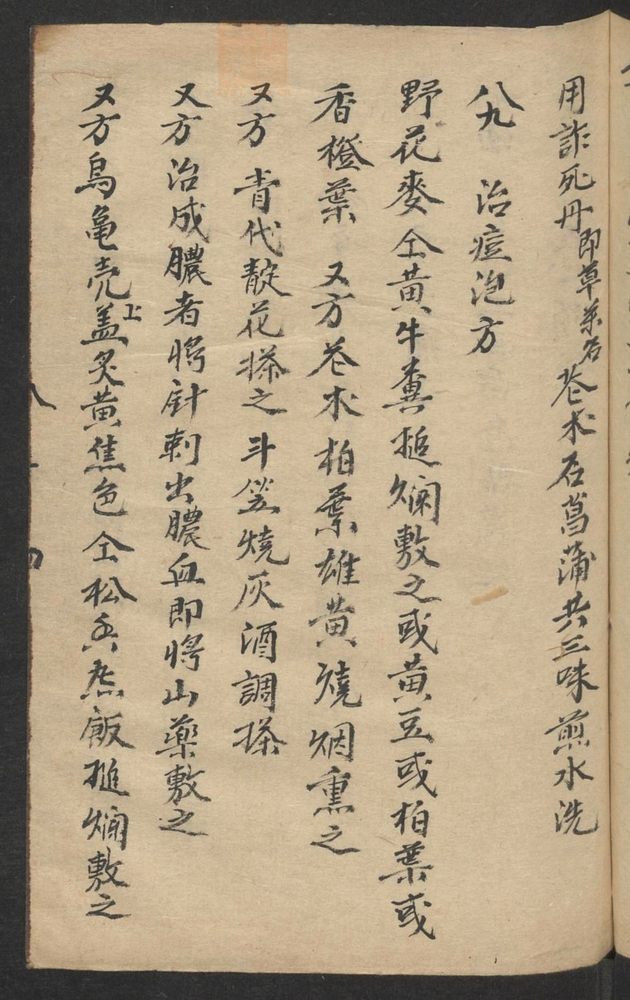 用詐死丹即草藥名苍术石菖蒲共三味煎水洗
八九 治痘泡方
野花麥仝黄牛糞搥爛敷之或黄豆或柏葉或
香橙葉 又方苍术柏葉雄黄燒烟熏之
又方 青代靛花搽之斗笠燒灰酒調搽
又方治成膿者將針刺出膿血即將山藥敷之
又方烏亀壳上盖炙黄焦色仝松飯搥爛敷之